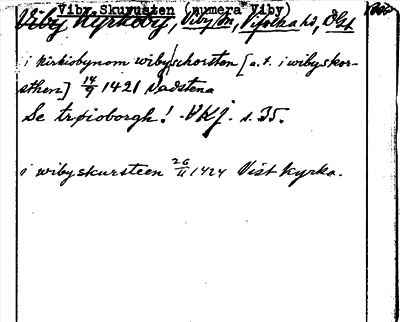 Viby Skuvusten (numera Viby)
Viby Kyrkoby, Viby sn, Vifolka hd, Ög.
i kirkiobynom wibyschorsten [a.t. i wibyskor-
sthen] 14/9 1421 Vadstena
Se trøioborgh! VKJ. s. 35.
i wibyskursteen 26/11 1424 Vist kyrka.